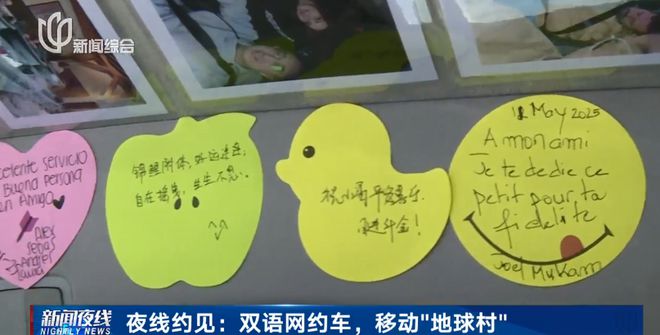 新闻综合
Excelente servicio
Buena Persona
un Amigo
Alex
锦鲤附体,好运连连,
自在摇曳,生生不息。
祝小哥平安喜乐
日进斗金!
12 May 2025
A mon ami
Je te dedie ce
petit pour ta
fidelite
Joel Mukam
新闻夜线
NIGHTLY NEWS
夜线约见:双语网约车,移动"地球村"